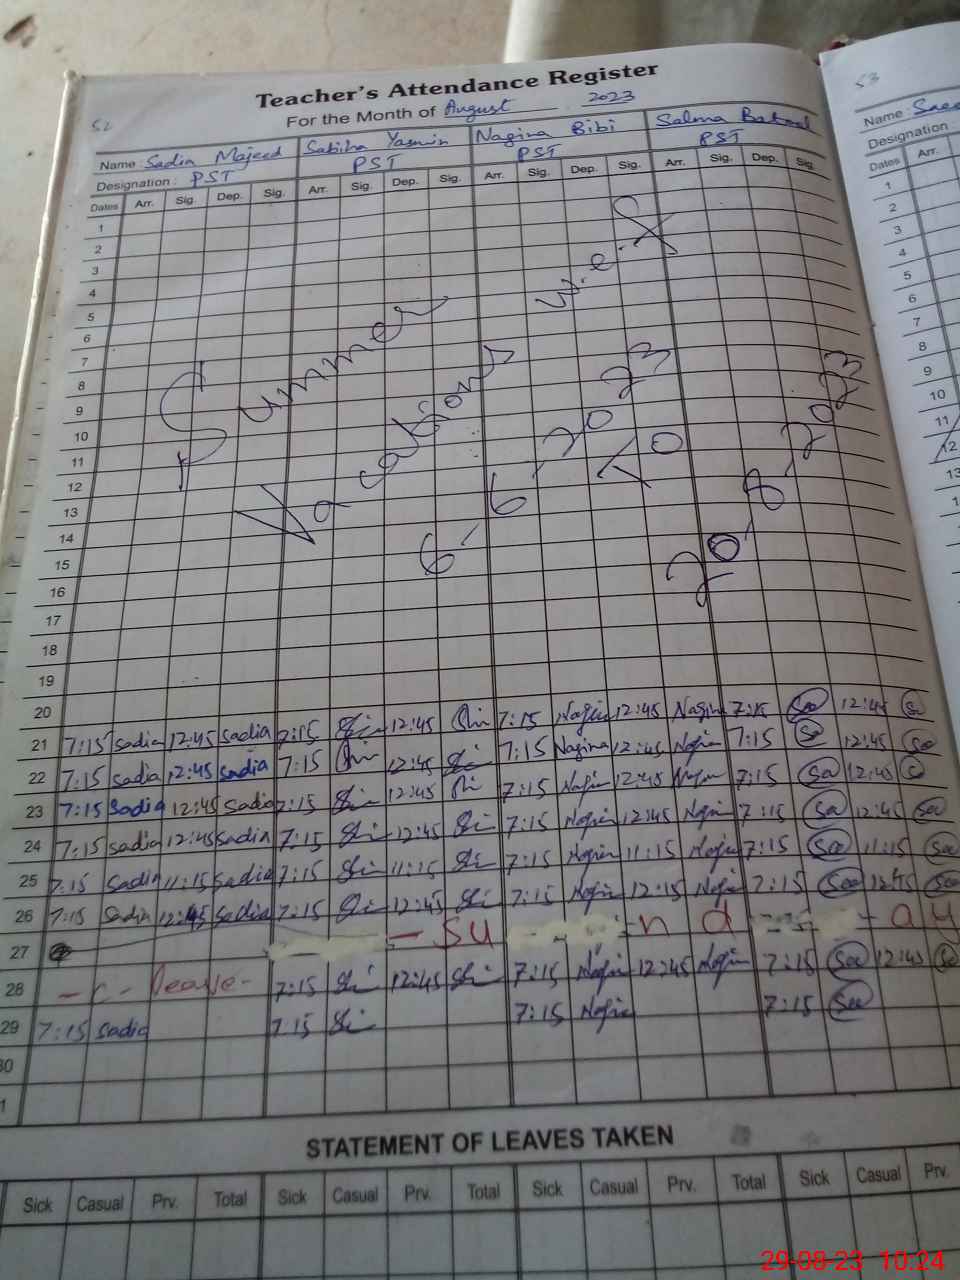 52
Teacher's Attendance Register
For the Month of August 2023
Name: Sadia Majeed Sabiha Yasmin Nagina Bibi Salma Batool
Designation: PST PST PST PST
Dates Arr. Sig. Dep. Sig. Arr. Sig. Dep. Sig. Arr. Sig. Dep. Sig. Arr. Sig. Dep. Sig.
1
2
3
4
5
6
7
8
9
10
11
12
13
14
15
16
17
18
19
20
Summer
Vacations w.e.f
6.6.2023
to
20.8.2023
21 7:15 sadia 12:45 sadia 7:15 12:45 7:15 Nagin 12:45 Nagina 7:15 Sa 12:45 Sa
22 7:15 sadia 12:45 sadia 7:15 12:45 7:15 Nagina 12:45 Nagin 7:15 Sa 12:45 Sa
23 7:15 Sadia 12:45 Sadia 7:15 12:45 7:15 Nagin 12:45 Nagin 7:15 Sa 12:45
24 7:15 sadia 12:45 sadia 7:15 12:45 7:15 Nagin 12:45 Nagin 7:15 Sa 12:45 Sa
25 7:15 Sadia 11:15 sadia 7:15 11:15 7:15 Nagin 11:15 Nagin 7:15 Sa 11:15 Sa
26 7:15 Sadia 12:45 Sadia 7:15 12:45 7:15 Nagin 12:15 Nagin 7:15 Saa 12:45 Saa
27 - Su - n d - ay
28 - C - leave - 7:15 12:45 7:15 Nagin 12:45 Nagin 7:15 Saa 12:45 Sa
29 7:15 Sadia 7:15 7:15 Nagin 7:15 Saa
30
STATEMENT OF LEAVES TAKEN
Sick Casual Prv. Total Sick Casual Prv. Total Sick Casual Prv. Total Sick Casual Prv.
53
Name:
Designation
Dates Arr.
1
2
3
4
5
6
7
8
9
10
11
12
13
29-08-23 10:24